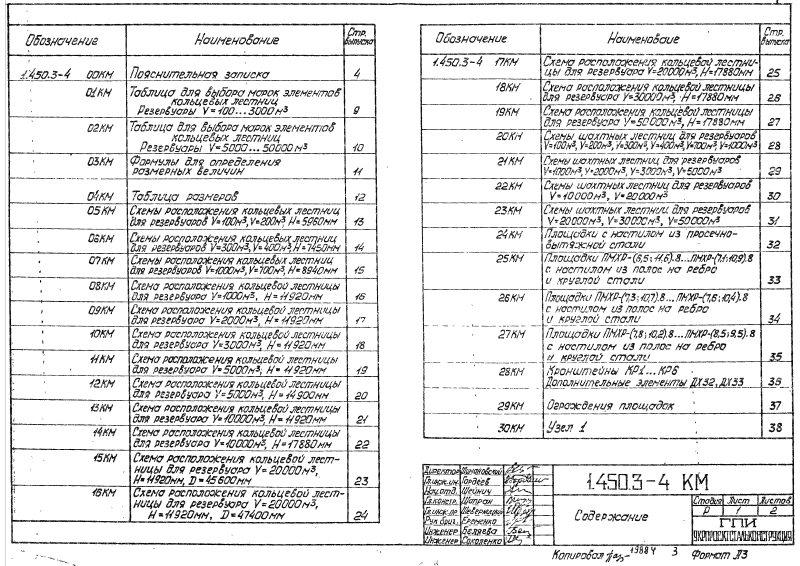 Обозначение Наименование Стр. выпуска
1.450.3-4 00КМ Пояснительная записка 4
01КМ Таблица для выбора марок элементов
кольцевых лестниц
Резервуары V=100...3000м³ 9
02КМ Таблица для выбора марок элементов
кольцевых лестниц
Резервуары V=5000...50000м³ 10
03КМ Формулы для определения
размерных величин 11
04КМ Таблица размеров 12
05КМ Схемы расположения кольцевых лестниц
для резервуаров V=100м³, V=200м³, H=5960мм 13
06КМ Схемы расположения кольцевых лестниц
для резервуаров V=300м³, V=400м³, H=7450мм 14
07КМ Схемы расположения кольцевых лестниц
для резервуаров V=1000м³, V=700м³, H=8940мм 15
08КМ Схема расположения кольцевой лестницы
для резервуара V=1000м³, H=11920мм 16
09КМ Схема расположения кольцевой лестницы
для резервуара V=2000м³, H=11920мм 17
10КМ Схема расположения кольцевой лестницы
для резервуара V=3000м³, H=11920мм 18
11КМ Схема расположения кольцевой лестницы
для резервуара V=5000м³, H=11920мм 19
12КМ Схема расположения кольцевой лестницы
для резервуара V=5000м³, H=14900мм 20
13КМ Схема расположения кольцевой лестницы
для резервуара V=10000м³, H=11920мм 21
14КМ Схема расположения кольцевой лестницы
для резервуара V=10000м³, H=17880мм 22
15КМ Схема расположения кольцевой лест-
ницы для резервуара V=20000м³,
H=11920мм, D=45600мм 23
16КМ Схема расположения кольцевой лест-
ницы для резервуара V=20000м³,
H=11920мм, D=47400мм 24
Обозначение Наименование Стр. выпуска
1.450.3-4 17КМ Схема расположения кольцевой лестни-
цы для резервуара V=20000м³, H=17880мм 25
18КМ Схема расположения кольцевой лестницы
для резервуара V=30000м³, H=17880мм 26
19КМ Схема расположения кольцевой лестницы
для резервуара V=50000м³, H=17880мм 27
20КМ Схемы шахтных лестниц для резервуаров
V=100м³, V=200м³, V=300м³, V=400м³, V=700м³, V=1000м³ 28
21КМ Схемы шахтных лестниц для резервуаров
V=1000м³, V=2000м³, V=3000м³, V=5000м³ 29
22КМ Схемы шахтных лестниц для резервуаров
V=10000м³, V=20000м³ 30
23КМ Схемы шахтных лестниц для резервуаров
V=20000м³, V=30000м³, V=50000м³ 31
24КМ Площадки с настилом из просечно-
вытяжной стали 32
25КМ Площадки ПМХР-(6,5; 11,6).8...ПМХР-(7,1; 10,9).8
с настилом из полос на ребро
и круглой стали 33
26КМ Площадки ПМХР-(7,3; 10,7).8...ПМХР-(7,6; 10,4).8
с настилом из полос на ребро
и круглой стали 34
27КМ Площадки ПМХР-(7,8; 10,2).8...ПМХР-(8,5; 9,5).8
с настилом из полос на ребро
и круглой стали 35
28КМ Кронштейны КР1...КР6
Дополнительные элементы ДХ32, ДХ33 36
29КМ Ограждения площадок 37
30КМ Узел 1 38
Директор
Гл.инж.ин. Гордеев
Нач.отд. Шейнич
Гл.констр. Шитрак
Гл.инж.пр.
Рук.бриг. Еременко
Инженер Беляева
Инженер Соколенко
1.450.3-4 КМ
Содержание
Стадия Лист Листов
Р 1 2
ГПИ
УКРПРОЕКТСТАЛЬКОНСТРУКЦИЯ
Копировал 19884 3 Формат А3